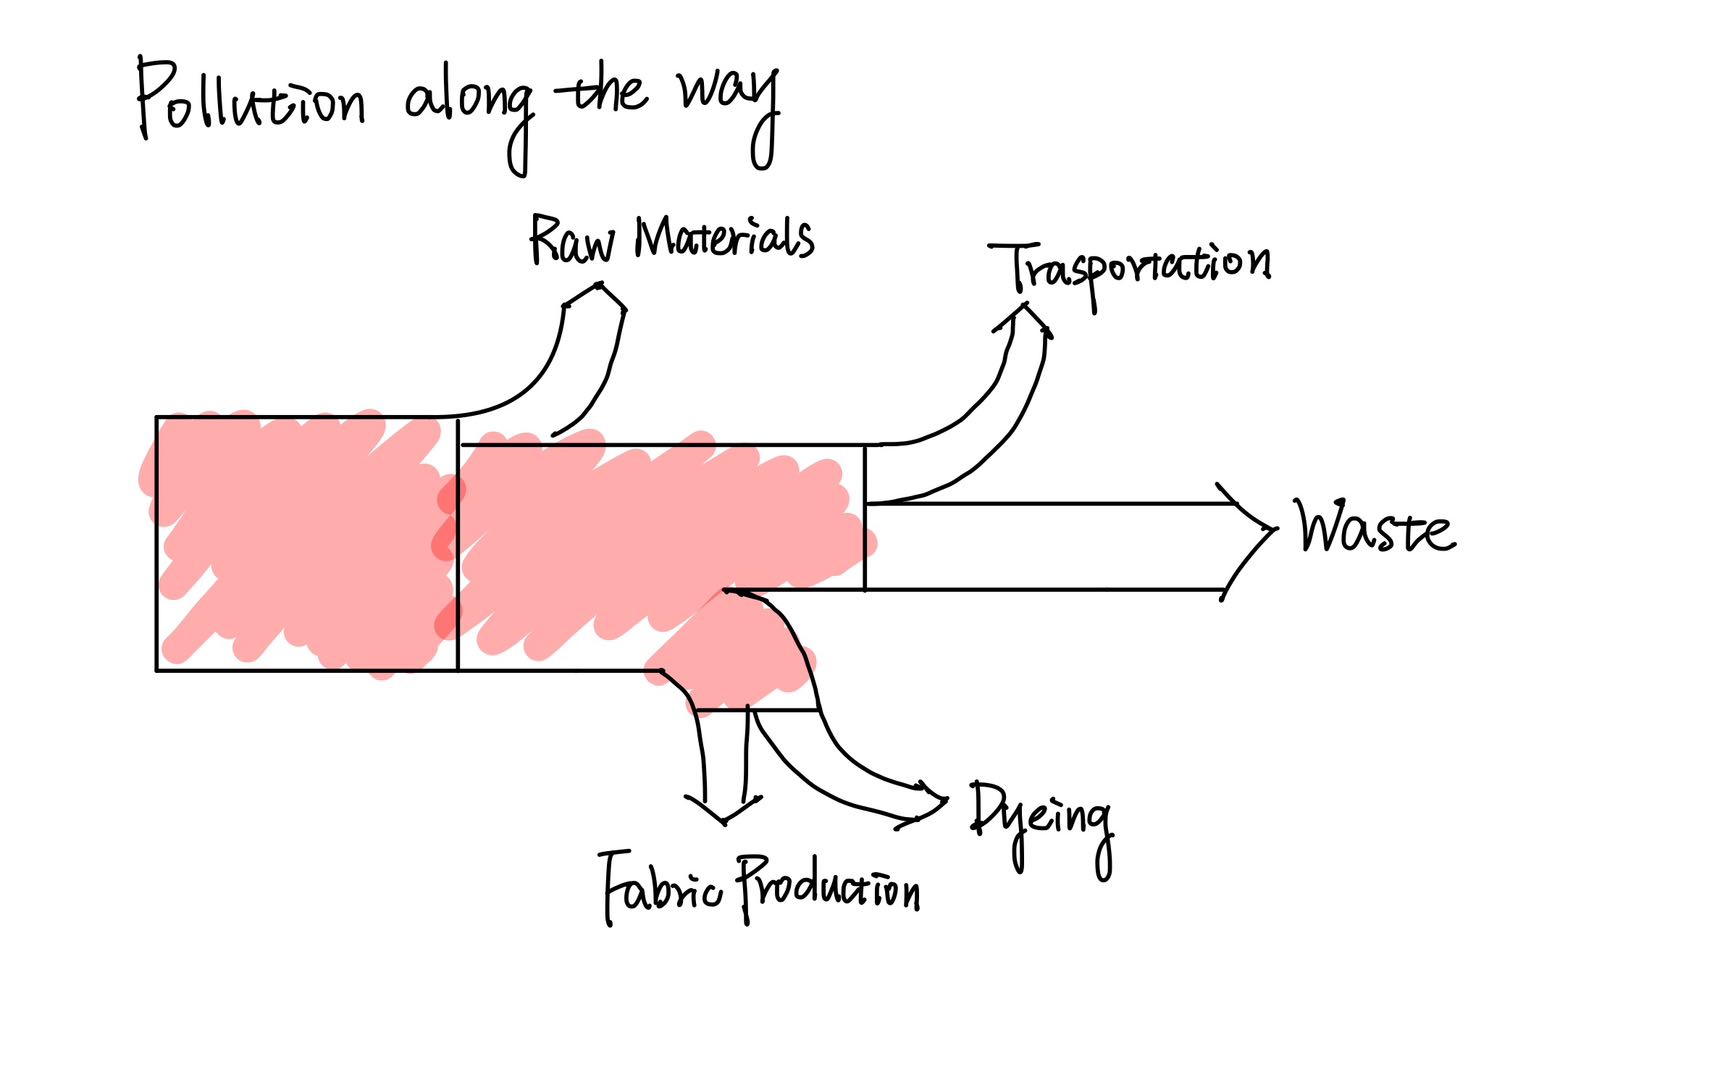 Pollution along the way
Raw Materials
Trasportation
Waste
Dyeing
Fabric Production